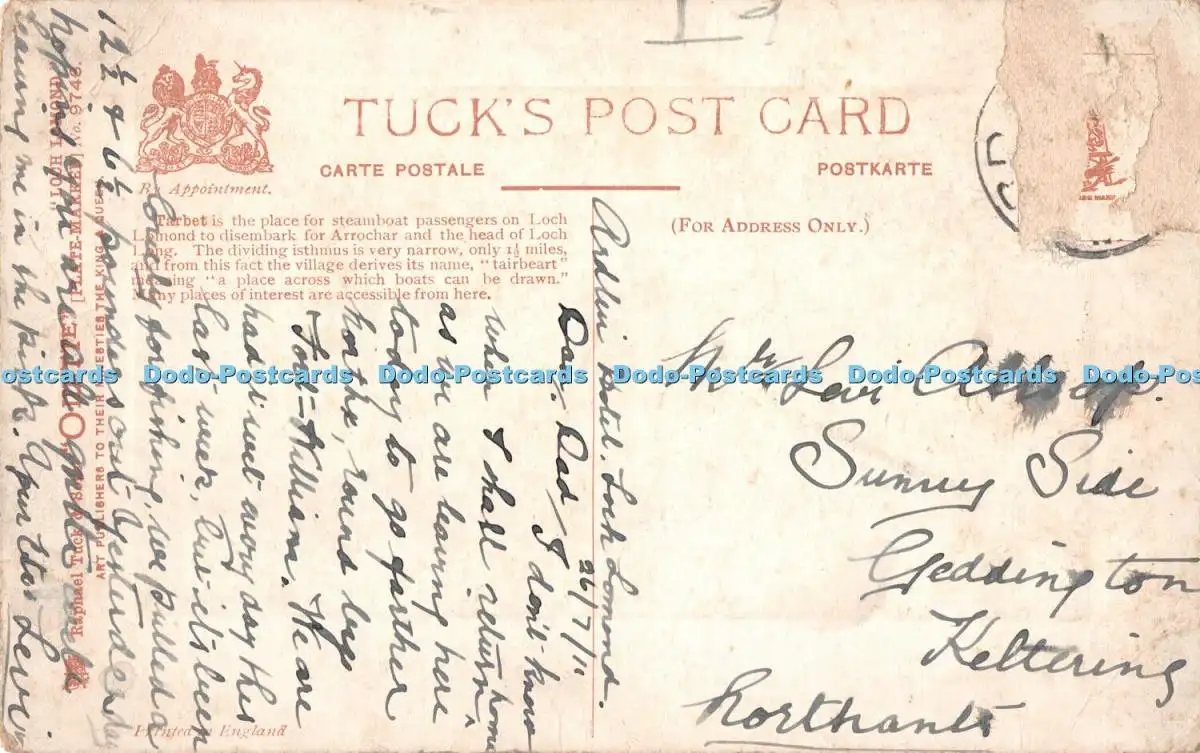 TUCK'S POST CARD
CARTE POSTALE
POSTKARTE
By Appointment.
(FOR ADDRESS ONLY.)
Tarbet is the place for steamboat passengers on Loch
Lomond to disembark for Arrochar and the head of Loch
Long. The dividing isthmus is very narrow, only 1½ miles,
and from this fact the village derives its name, "tairbeart"
meaning "a place across which boats can be drawn."
Many places of interest are accessible from here.
Printed in England
"LOCH LOMOND"
"OILETTE" [HARTE-MARKE] No. 9746.
Raphael Tuck & Sons
ART PUBLISHERS TO THEIR MAJESTIES THE KING & QUEEN
Ardlui Hotel, Loch Lomond.
26/7/11
Dear Dad, I don't know
when I shall return home
as we are leaving here
today to go farther
North, round by
Fort-William. We are
had wet every day this
last week, but it's been
for fishing, we pulled a
12½ & 6½ pounds out yesterday
hoping you are all quite well
leaving me in the pink. Your Son Lewi
Mr Levi Allsop.
Sunny Side
Geddington
Kettering
Northants
Dodo-Postcards Dodo-Postcards Dodo-Postcards Dodo-Postcards Dodo-Postcards